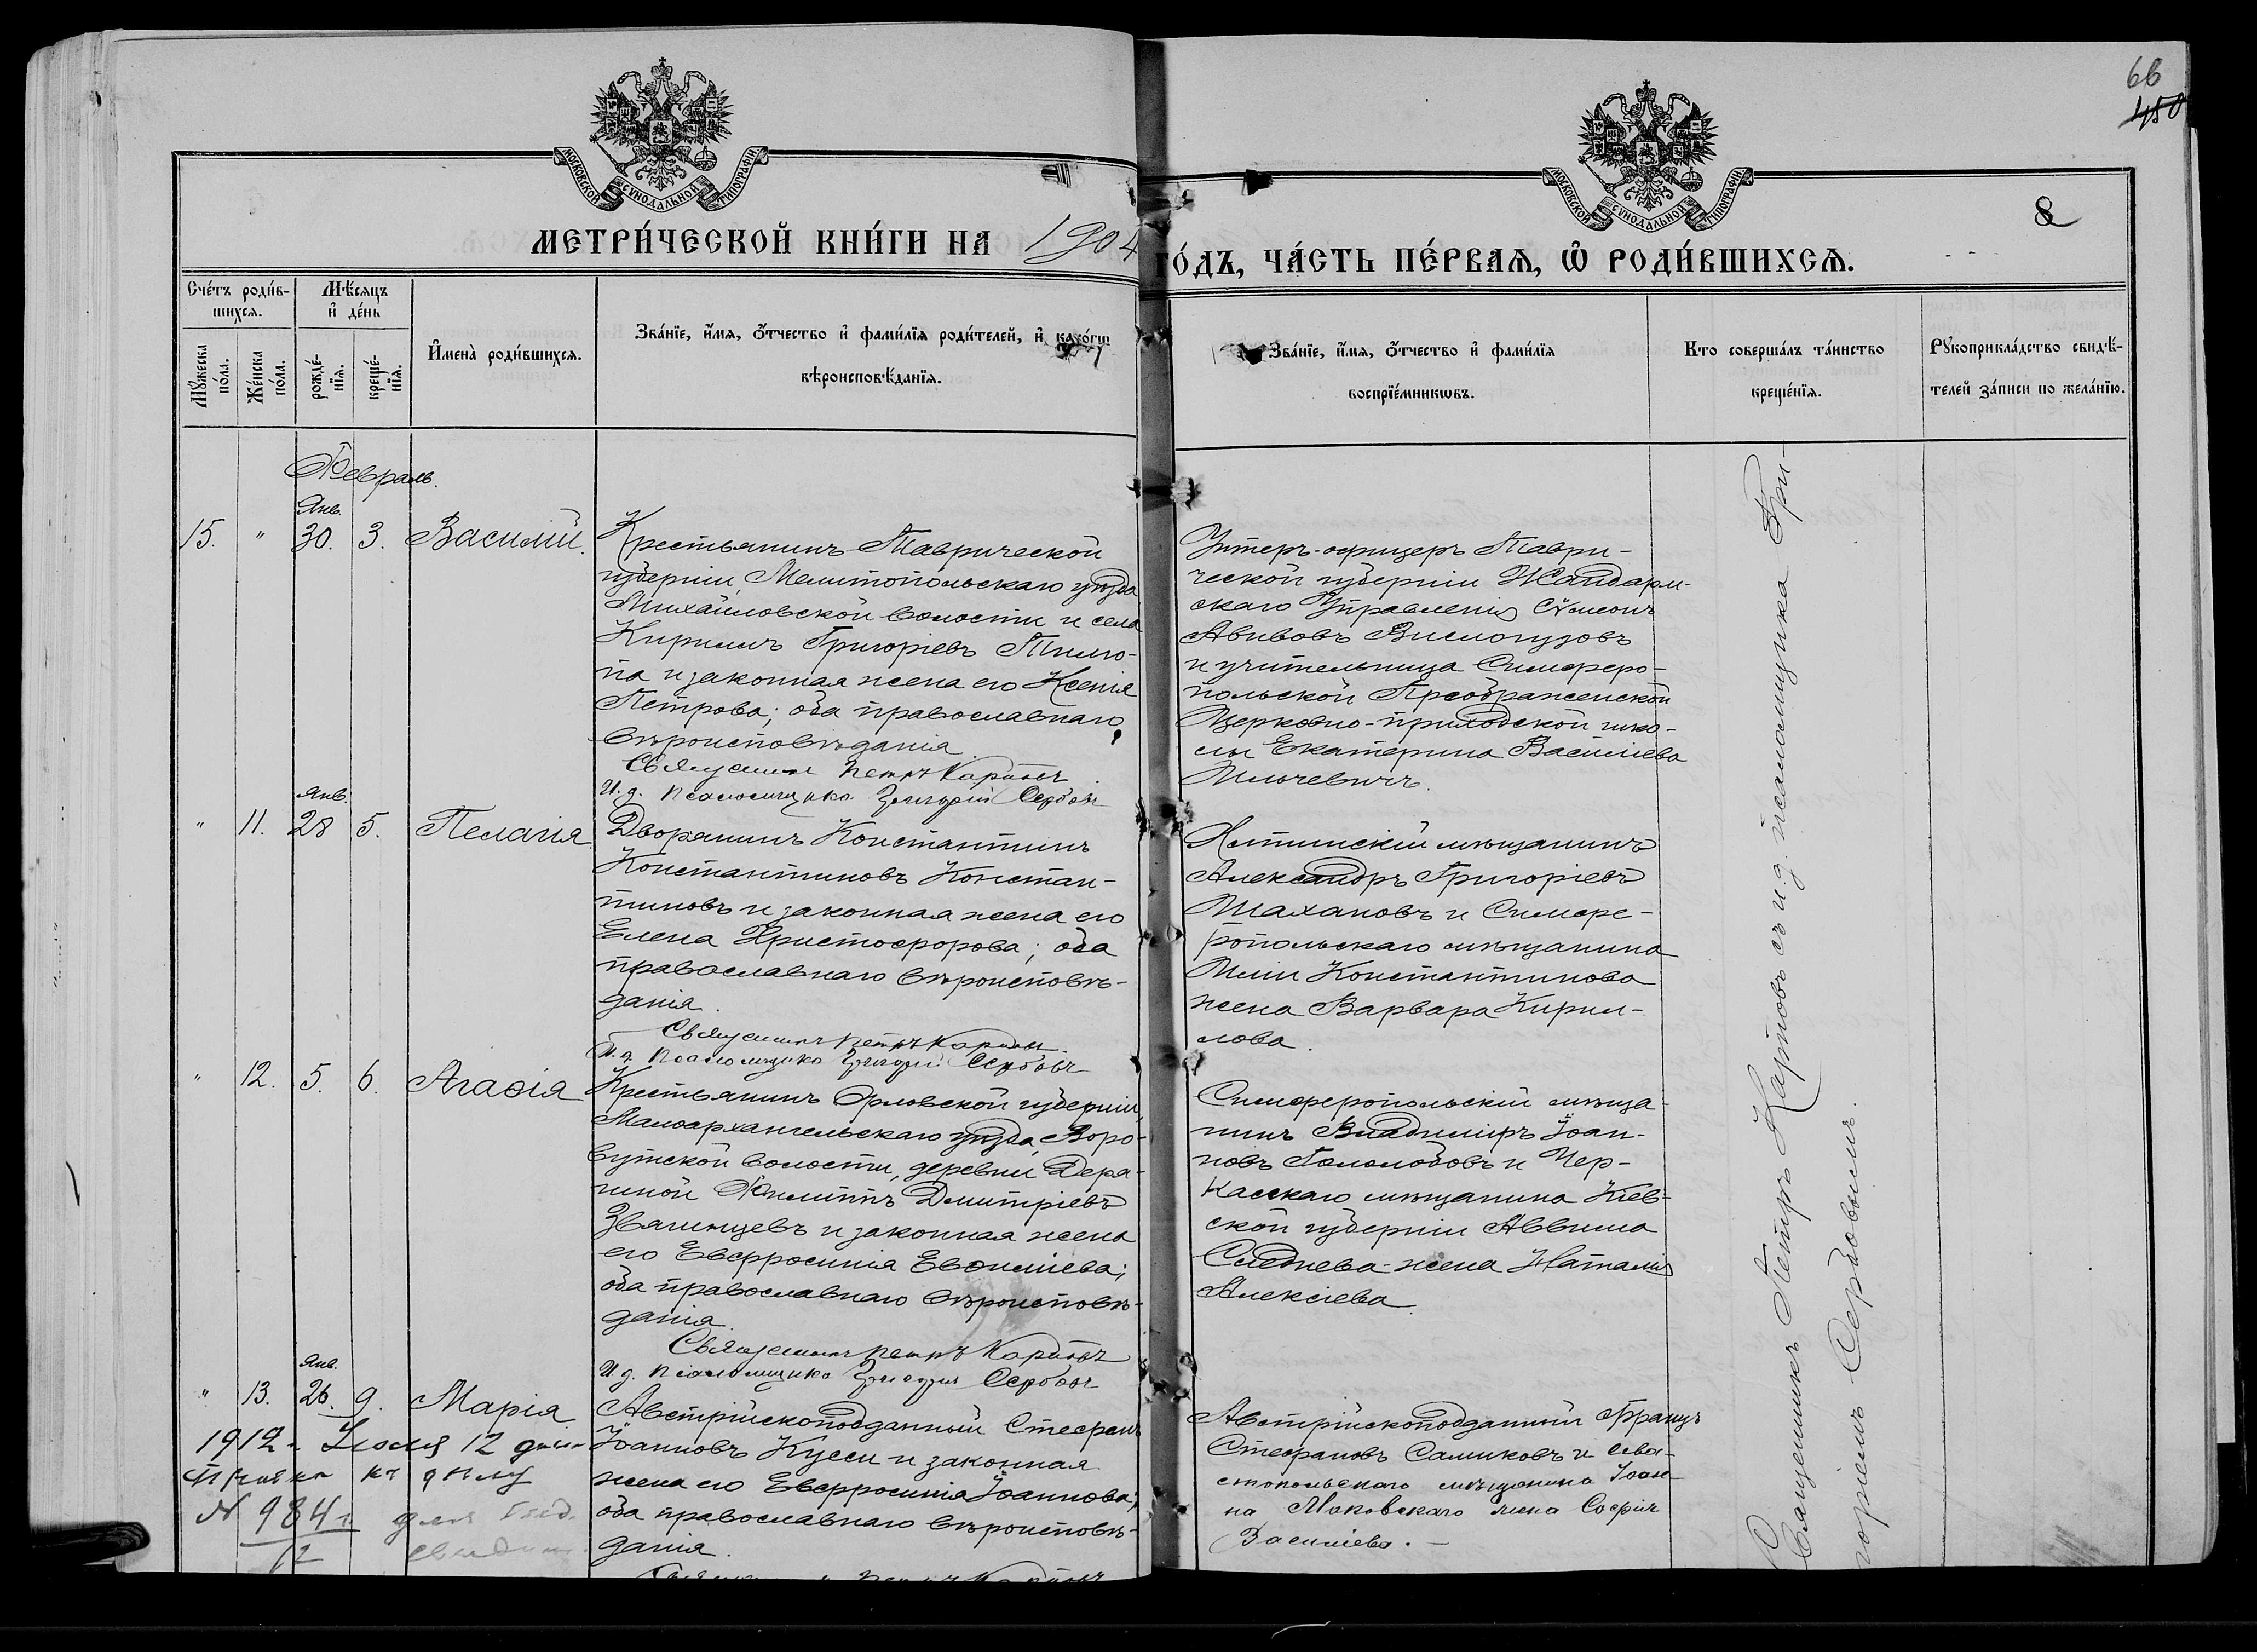 66
450
8
МОСКОВСКОЙ СѴНОДАЛЬНОЙ ТИПОГРАФІИ
МОСКОВСКОЙ СѴНОДАЛЬНОЙ ТИПОГРАФІИ
МЕТРИ́ЧЕСКОЙ КНИ́ГИ НА 1904
ГО́ДЪ, ЧА́СТЬ ПЕ́РВАѦ, Ѽ РОДИ́ВШИХСѦ.
Сче́тъ роди́в-
шихсѧ.
Мꙋ́жеска по́ла.
Же́нска по́ла.
Мѣ́сяцъ
и҆ де́нь
рожде́-
нїѧ.
креще́-
нїѧ.
И҆мена̀ роди́вшихсѧ.
Зва́нїе, и҆́мѧ, ѻ҆́тчество и҆ фами́лїѧ роди́телей, и҆ како́гѡ
вѣроисповѣ́данїѧ.
Зва́нїе, и҆́мѧ, ѻ҆́тчество и҆ фами́лїѧ
воспрїе́мникѡвъ.
Кто соверша́лъ та́инство
креще́нїѧ.
Рꙋкоприкла́дство свидѣ́-
телей за́писи по жела́нїю.
Февраль.
Янв.
15. " 30. 3. Василій.
Крестьянинъ Таврической
губерніи, Мелитопольскаго уѣзда
Михайловской волости и села
Кириллъ Григоріевъ
и законная жена его Ксенія
Петрова; оба православнаго
вѣроисповѣданія
Священникъ Петръ Карповъ
И. д. псаломщика Григорій Сербовъ
Унтеръ-офицеръ Таври-
ческой губерніи Жандарм-
скаго Управленія Сѵмеонъ
Авивовъ Вислогузовъ
и учительница Симферо-
польской Преображенской
Церковно-приходской шко-
лы Екатерина Василіева
Ильчевичъ.
Янв.
" 11. 28 5. Пелагія
Дворянинъ Константинъ
Константиновъ Констан-
тиновъ и законная жена его
Елена Христофорова; оба
православнаго вѣроисповѣ-
данія.
Священникъ Петръ Карповъ
И. д. псаломщика Григорій Сербовъ
Ялтинскій мѣщанинъ
Александръ Григоріевъ
Шахановъ и Симфе-
ропольскаго мѣщанина
Иліи Константинова
жена Варвара Кирил-
лова.
" 12. 5. 6. Агаѳія
Крестьянинъ Орловской губерніи,
Малоархангельскаго уѣзда, Воро-
волости, деревни
Филиппъ Дмитріевъ
Звягинцевъ и законная жена
его Евфросинія Евѳиміева;
оба православнаго вѣроисповѣ-
данія.
Священникъ Петръ Карповъ
И. д. псаломщика Григорій Сербовъ
Симферопольскій мѣща-
нинъ Владиміръ Іоан-
новъ Гололобовъ и Чер-
касскаго мѣщанина Кіев-
ской губерніи
Следнева жена Наталія
Алексіева.
Янв.
" 13. 26. 9. Марія
Австрійскоподданный Стефанъ
Іоанновъ Кусси и законная
жена его Евфросинія Іоаннова;
оба православнаго вѣроисповѣ-
данія.
Австрійскоподданный Францъ
Стефановъ Самиковъ и Сева-
стопольскаго мѣщанина Іоан-
на Маковскаго жена Софія
Василіева. —
1912 г. 12 дня
къ дѣлу
№ 984
12
для
Священникъ Петръ Карповъ съ и. д. псаломщика Гри-
горіемъ Сербовымъ.